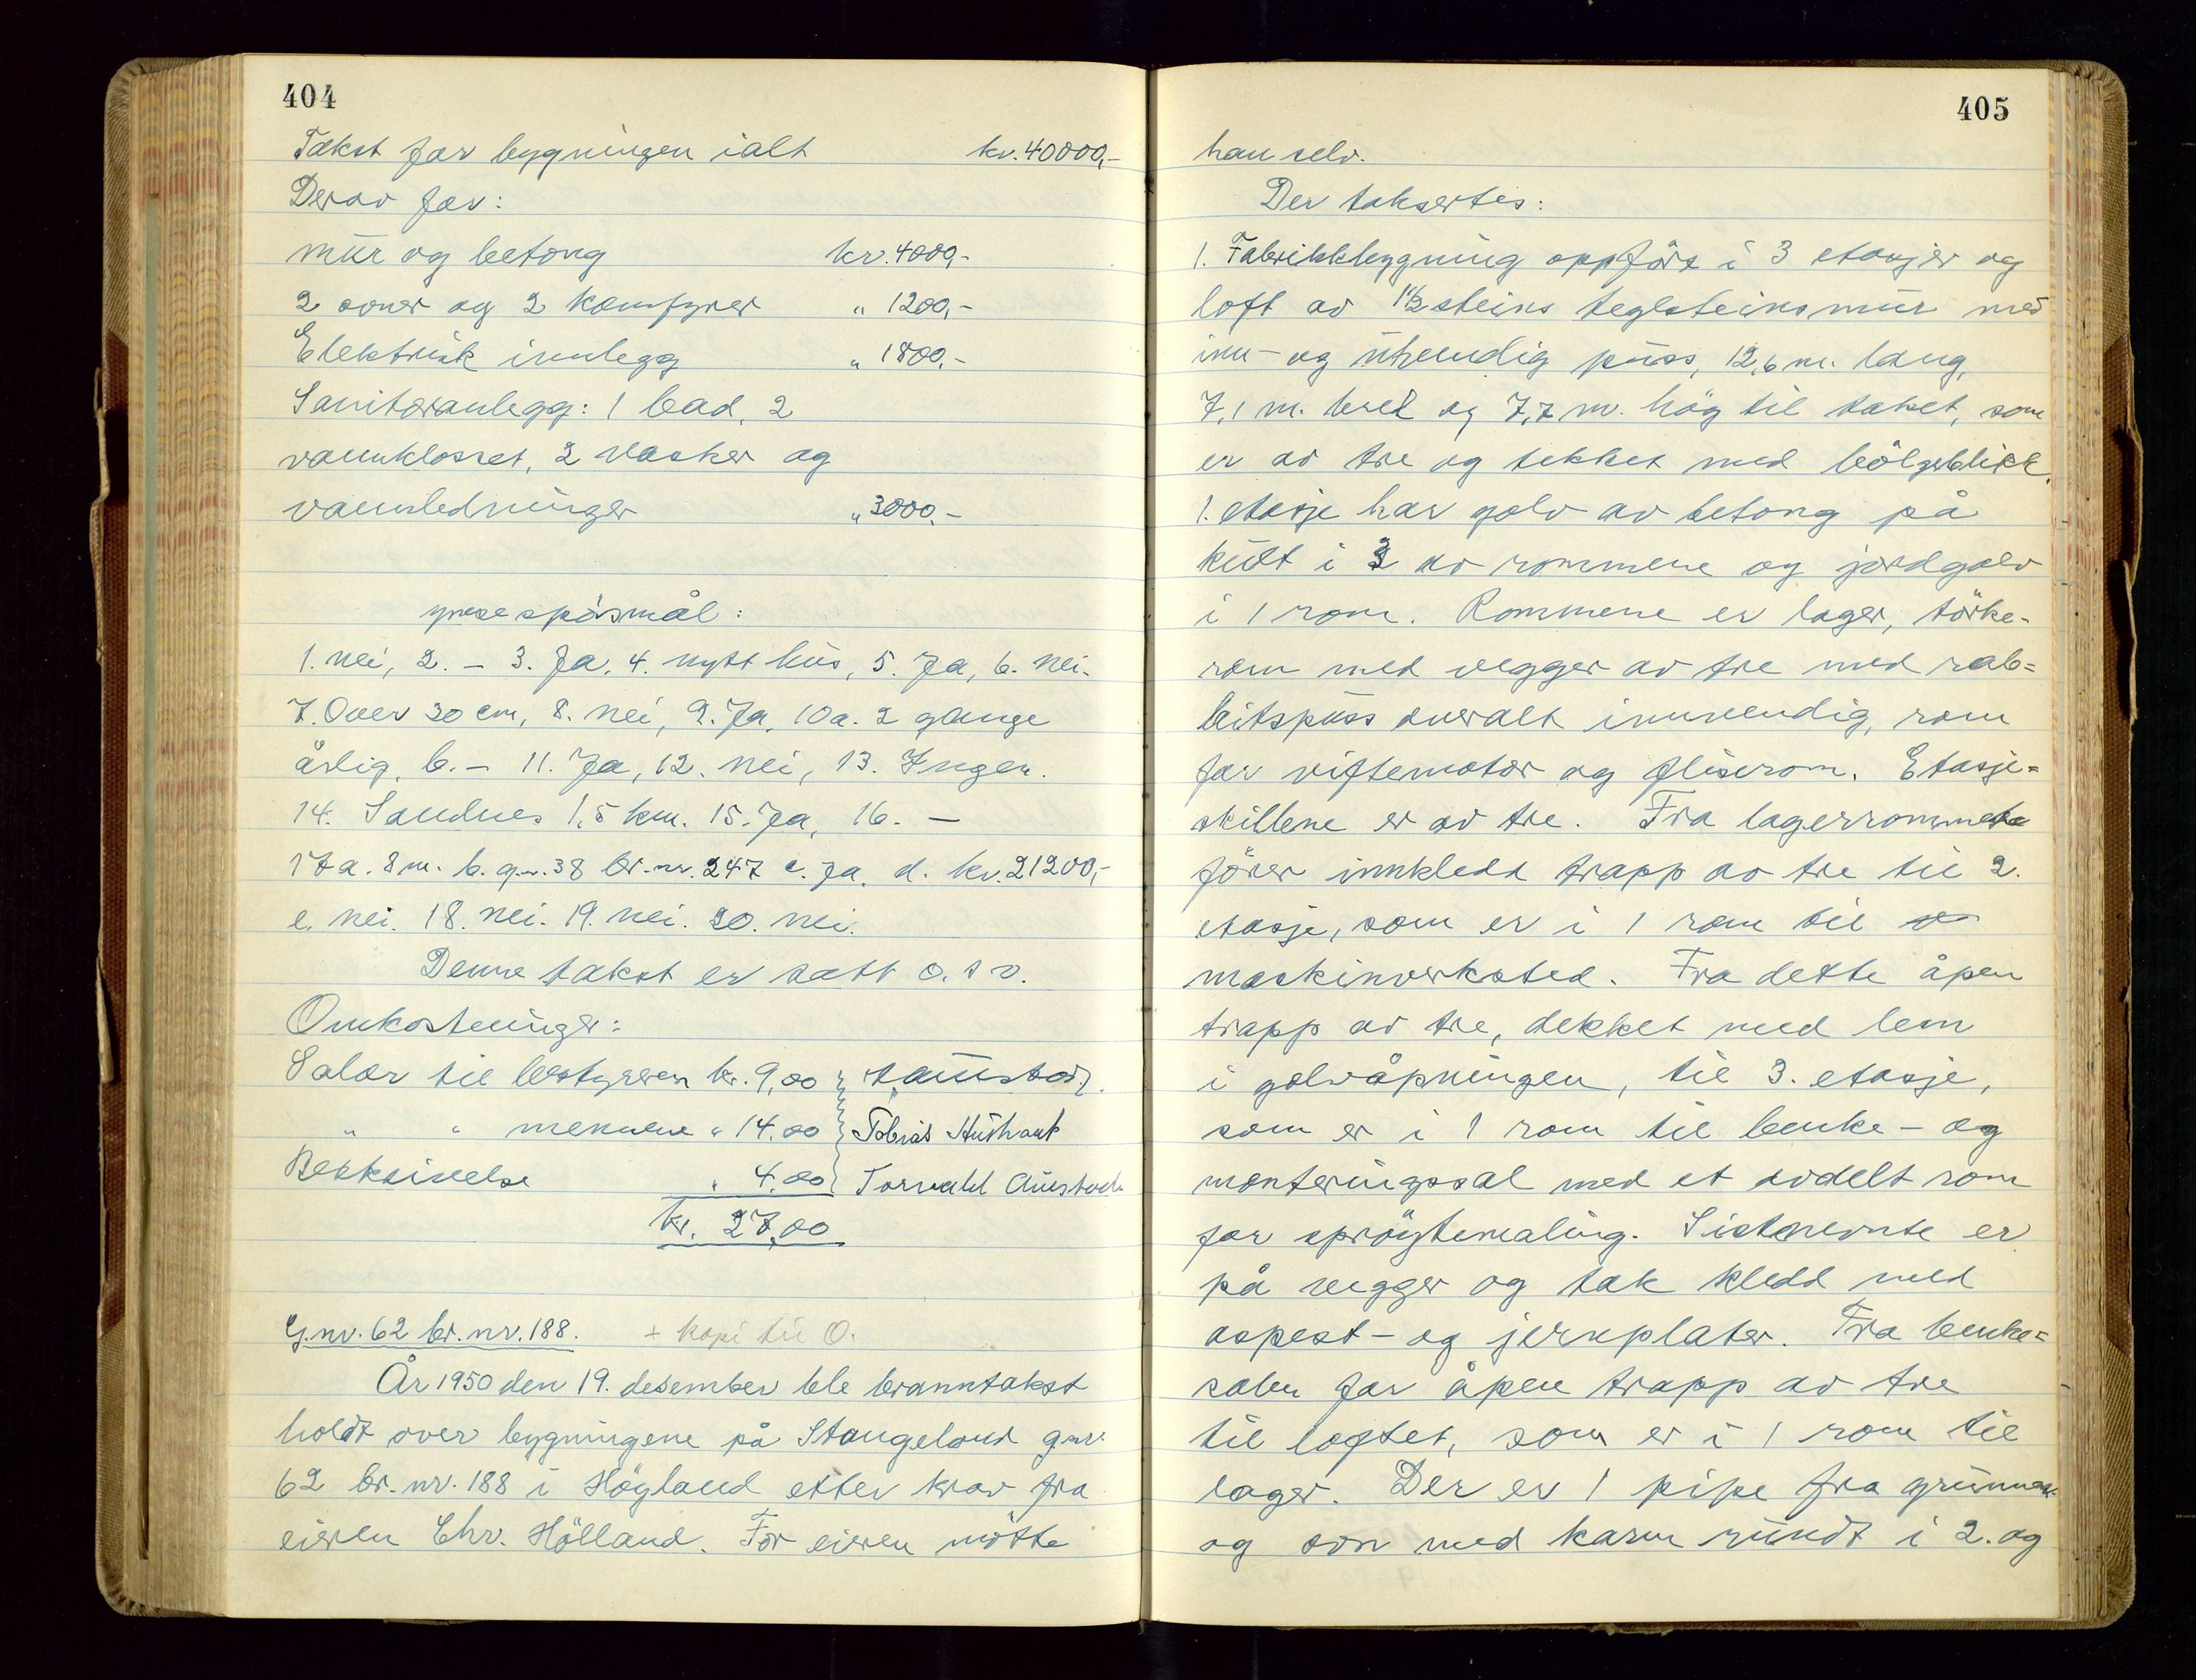 404
Takst for bygningen ialt kr. 40000,-
Derav for:
mur og betong kr. 4000,-
2 ovner og 2 komfyrer " 1200,-
Elektrisk innlegg " 1800,-
Sanitæranlegg: 1 bad, 2
vannklosset, 2 vasker og
vannledninger " 3000,-
spøsmål:
1. nei, 2. – 3. Ja, 4. nytt hus, 5. Ja, 6. nei.
7. Over 30 cm, 8. nei, 9. Ja, 10a. 2 gange
årlig, b. – 11. Ja, 12. nei, 13. Ingen.
14. Sandnes 1,5 km. 15. Ja, 16. –
17 a. 8 m. b. g.nr. 38 br.nr. 247 c. Ja. d. kr. 21200,-
e. nei. 18. nei. 19. nei. 20. nei.
Denne takst er satt o.s v.
Omkostninger:
Salær til bestyreren kr. 9,00
" " mennene " 14.00 Tobias Husthauk
Beskrivelse " 4.00 Torvald Austvoll
kr. 27,00
G.nr. 62 br.nr. 188. + kopi til O.
År 1950 den 19. desember ble branntakst
holdt over bygningene på Stangeland gnr.
62 br.nr. 188 i Höyland etter krav fra
eieren Chr. Hölland. For eieren mötte
405
han selv.
Der taksertes:
1. Fabrikkbygning oppförs i 3 etasjer og
loft av 1½ steins teglsteinsmur med
inn- og utvendig puss, 12,6 m. lang,
7,1 m. bred og 7,7 m. hög til taket, som
er av tre og tekket med bölgeblikk.
1. etasje har golv av betong på
kult i 3 av rommene og jordgolv
i 1 rom. Rommene er lager, törke-
rom med vegger av tre med rab=
bitspuss overalt innvendig, rom
for viftemotor og fliserom. Etasje=
skillene er av tre. Fra lagerrommet
förer innkledd trapp av tre til 2.
etasje, som er i 1 rom til
maskinverksted. Fra dette åpen
trapp av tre, dekket med lem
i golvåpningen, til 3. etasje,
som er i 1 rom til benke- og
monteringssal med et avdelt rom
for spröytemaling. Sistnevnte er
på vegger og tak kledd med
aspest- og jernplater. Fra benke=
salen før åpen trapp av tre
til loftet, som er i 1 rom til
lager. Der er 1 pipe fra grunnen
og ovn med karm rundt i 2. og